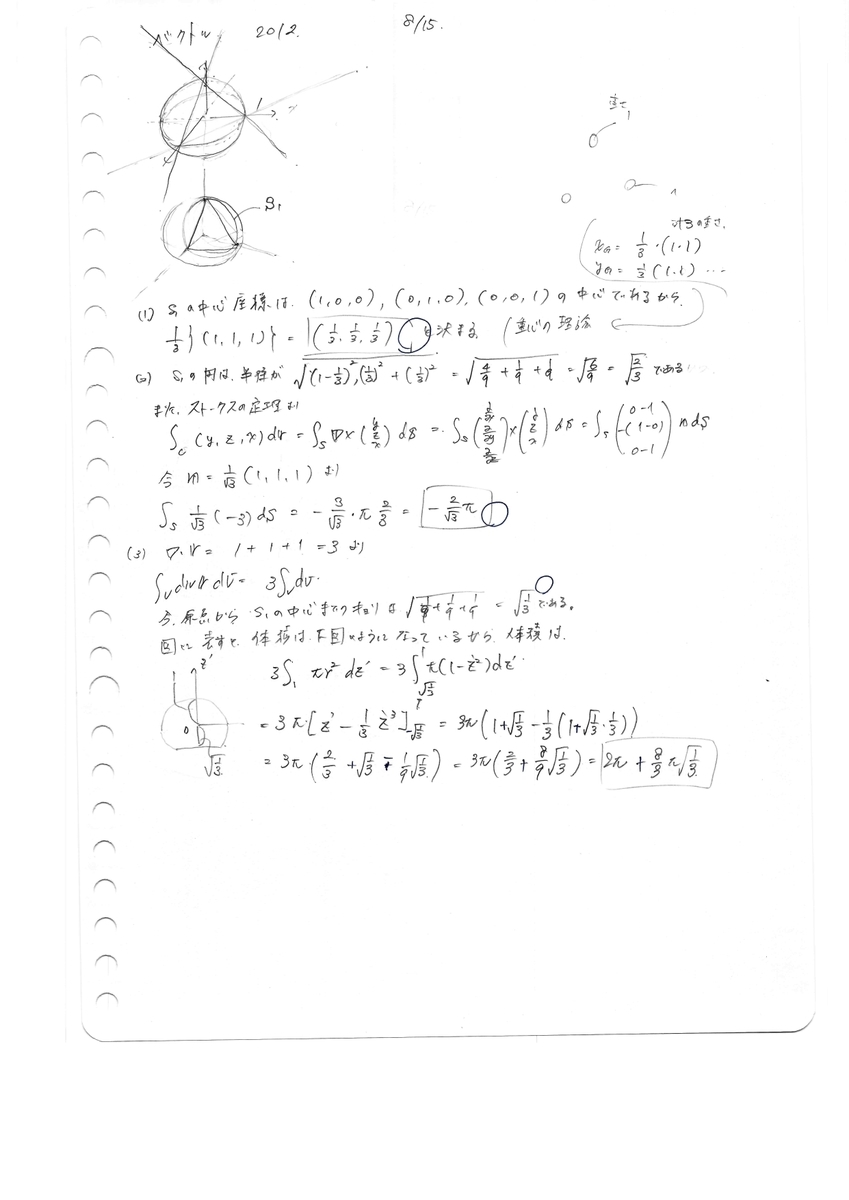 ベクトル 2012. 8/15.
1
S₁
重さ
1
1
計3の重さ.
x_G = 1/3 · (1·1)
y_G = 1/3 (1·1) ...
(1) S₁の中心座標は, (1,0,0), (0,1,0), (0,0,1) の中心であるから,
1/3 {(1,1,1)} = (1/3, 1/3, 1/3) と決まる. (重心の理論
(2) S₁の円は, 半径が √((1-1/3)², (1/3)² + (1/3)²) = √(4/9 + 1/9 + 1/9) = √(6/9) = √(2/3) である
また, ストークスの定理より
∫_C (y, z, x) dr = ∫_S ∇× (y z x) dS = ∫_S (∂/∂x ∂/∂y ∂/∂z) × (y z x) dS = ∫_S (0-1 -(1-0) 0-1) n dS
今 n = 1/√3 (1,1,1) より
∫_S 1/√3 (-3) dS = - 3/√3 · π 2/3 = - 2/√3 π
(3) ∇·r = 1 + 1 + 1 = 3 より
∫_V div r dV = 3∫_V dv.
今, 原点から S₁の中心までのキョリは √(1/9 + 1/9 + 1/9) = √(1/3) である.
図に表すと, 体積は, 下図のようになっているから, 体積は,
z'
1
0
√(1/3)
3∫₁ πr² dz' = 3∫ π(1-z'²) dz'
= 3π [z' - 1/3 z'³] = 3π (1 + √(1/3) - 1/3 (1 + √(1/3) · 1/3))
= 3π · (2/3 + √(1/3) - 1/9 √(1/3)) = 3π (2/3 + 8/9 √(1/3)) = 2π + 8/3 π √(1/3)